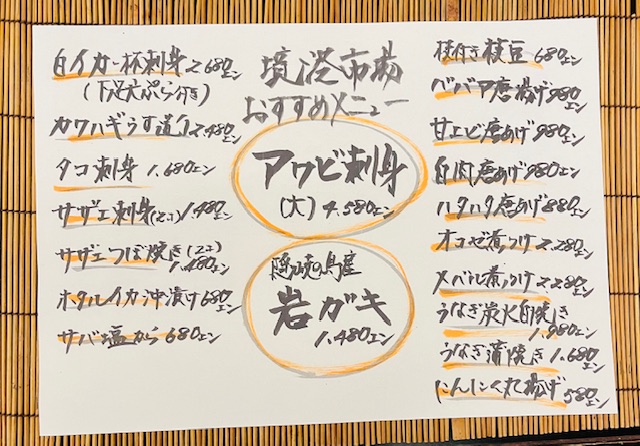 境港市場
おすすめメニュー
アワビ刺身
(大) 4.580エン
隠岐の島産
岩ガキ
1,480エン
白イカ一杯刺身 2.680エン
(下足天ぷら付き)
カワハギうす造り 2,480エン
タコ刺身 1.680エン
サザエ刺身(2コ) 1,480エン
サザエつぼ焼き(2コ)
1,480エン
ホタルイカ沖漬け 680エン
サバ塩から 680エン
枝付き枝豆 680エン
ババア唐揚げ 980エン
甘エビ唐あげ 980エン
白肉唐あげ 980エン
ハタハタ唐あげ 880エン
オコゼ煮つけ 2,280エン
メバル煮つけ 2,280エン
うなぎ炭火白焼き
1,980エン
うなぎ蒲焼き 1,680エン
にんにく丸揚げ 580エン